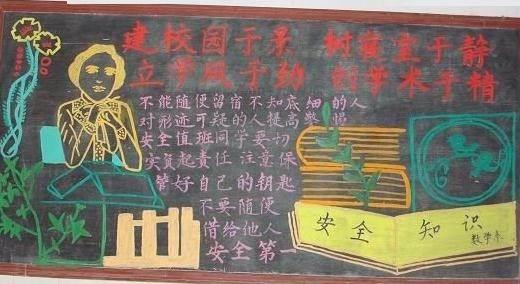 建校园于景 树寝室于静
立学风于勤 创学术于精
不能随便留宿不知底细的人
对形迹可疑的人提高警惕
安全值班同学要切
实负起责任 注意保
管好自己的钥匙
不要随便
借给他人
安全第一
安全知识
数学系